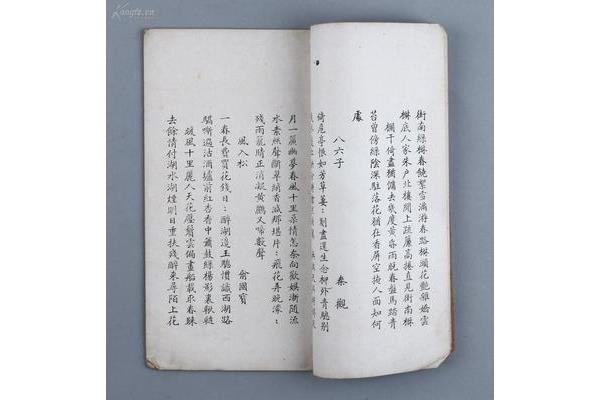 街南綠樹春饒絮雪滿游春路樹頭花艷雜嬌雲
樹底人家朱戶北樓閒上疏簾高捲直見街南樹
欄干倚盡猶慵去幾度黃昏雨晚春盤馬踏青
苔曾傍綠陰深駐落花猶在香屏空掩人面知何
處
八六子 秦觀
倚危亭恨如芳草萋〻剗盡還生念柳外青驄別
月一簾幽夢春風十里柔情怎奈向歡娛漸隨流
水素絲聲斷翠綃香減那堪片〻飛花弄晚濛〻
殘雨籠晴正消凝黃鸝又啼數聲
風入松 俞國寶
一春長費買花錢日〻醉湖邊玉驄慣識西湖路
驕嘶過沽酒壚前紅杏香中簫鼓綠楊影裏鞦韆
暖風十里麗人天花壓鬢雲偏畫船載取春歸
去餘情付湖水湖煙明日重扶殘醉來尋陌上花